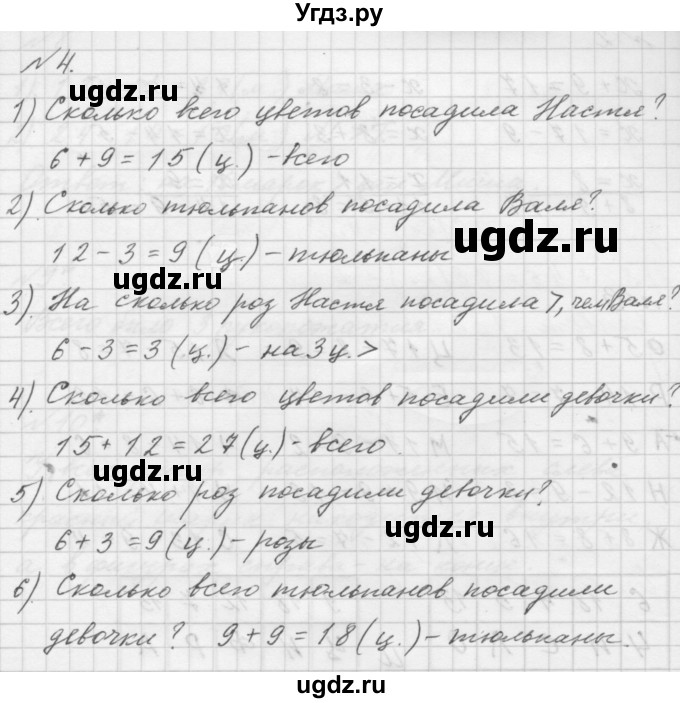 Угдз.ру
№ 4.
ugdz.ru
1) Сколько всего цветов посадила Настя?
6 + 9 = 15 (ц.) - всего
ugdz.ru
2). Сколько тюльпанов посадила Валя?
ugdz.ru
12 - 3 = 9 (ц.) - тюльпаны
ugdz.ru
3). На сколько роз Настя посадила >, чем Валя?
6 - 3 = 3 (ц.) - на 3 ц. >
ugdz.ru
4). Сколько всего цветов посадили девочки?
15 + 12 = 27 (ц.) - всего
ugdz.ru
5) Сколько роз посадили девочки?
6 + 3 = 9 (ц.) - розы
ugdz.ru
ugdz.ru
6) Сколько всего тюльпанов посадили
девочки? 9 + 9 = 18 (ц.) - тюльпаны.
ugdz.ru
ugdz.ru